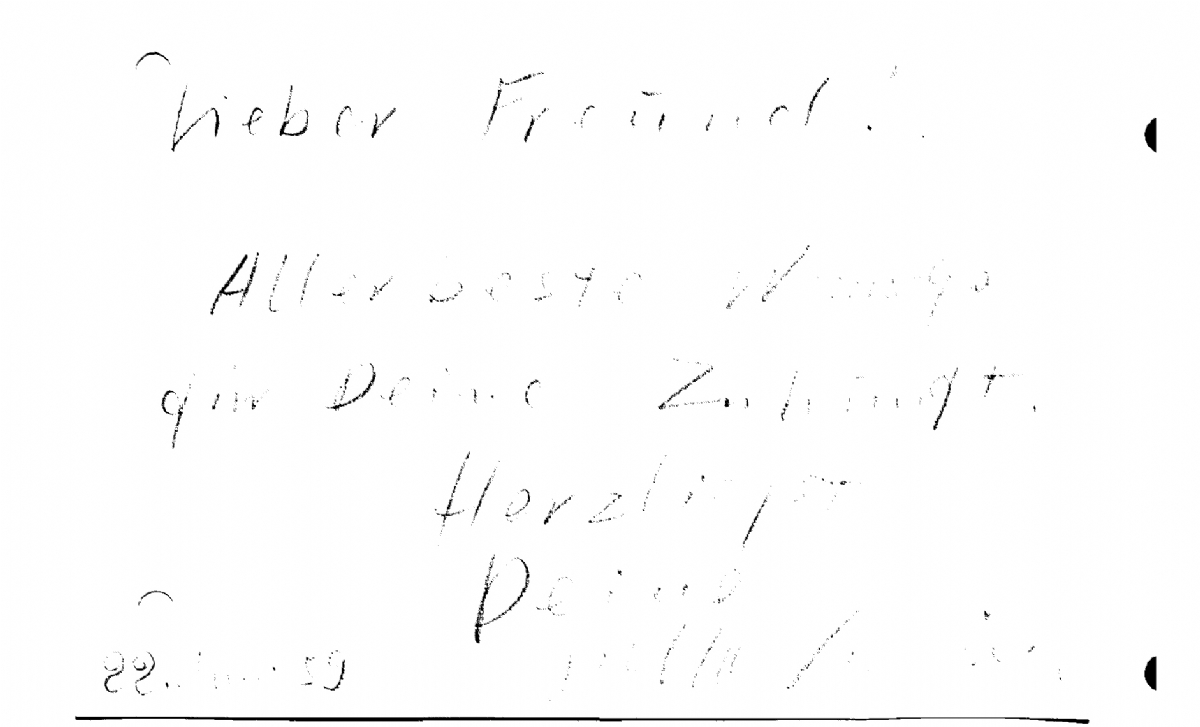 Lieber Freund!
Allerbeste Wünsche
für Deine Zukunft.
Herzlichst
Deine